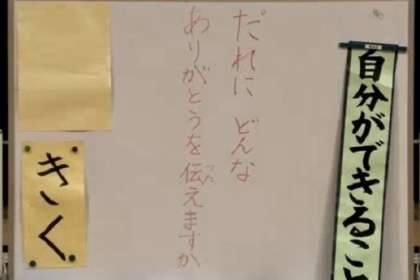 自分ができること
だれに どんな
ありがとうを伝えますか
つた
きく